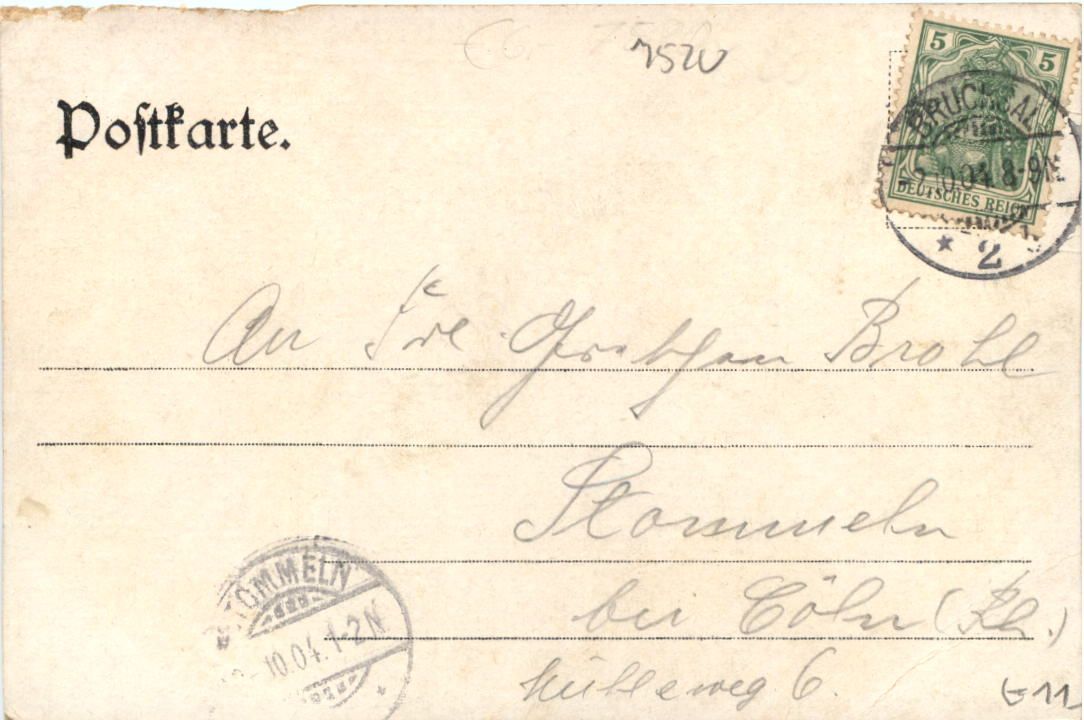 7520
Postkarte.
5 5
BRUCHSAL
2.10.04. 8-9N
DEUTSCHES REICH
* 2
An Frl. Brohl
Stommeln
bei Cöln (Rh.)
Mühleweg 6.
STOMMELN
10.04. 1-2N